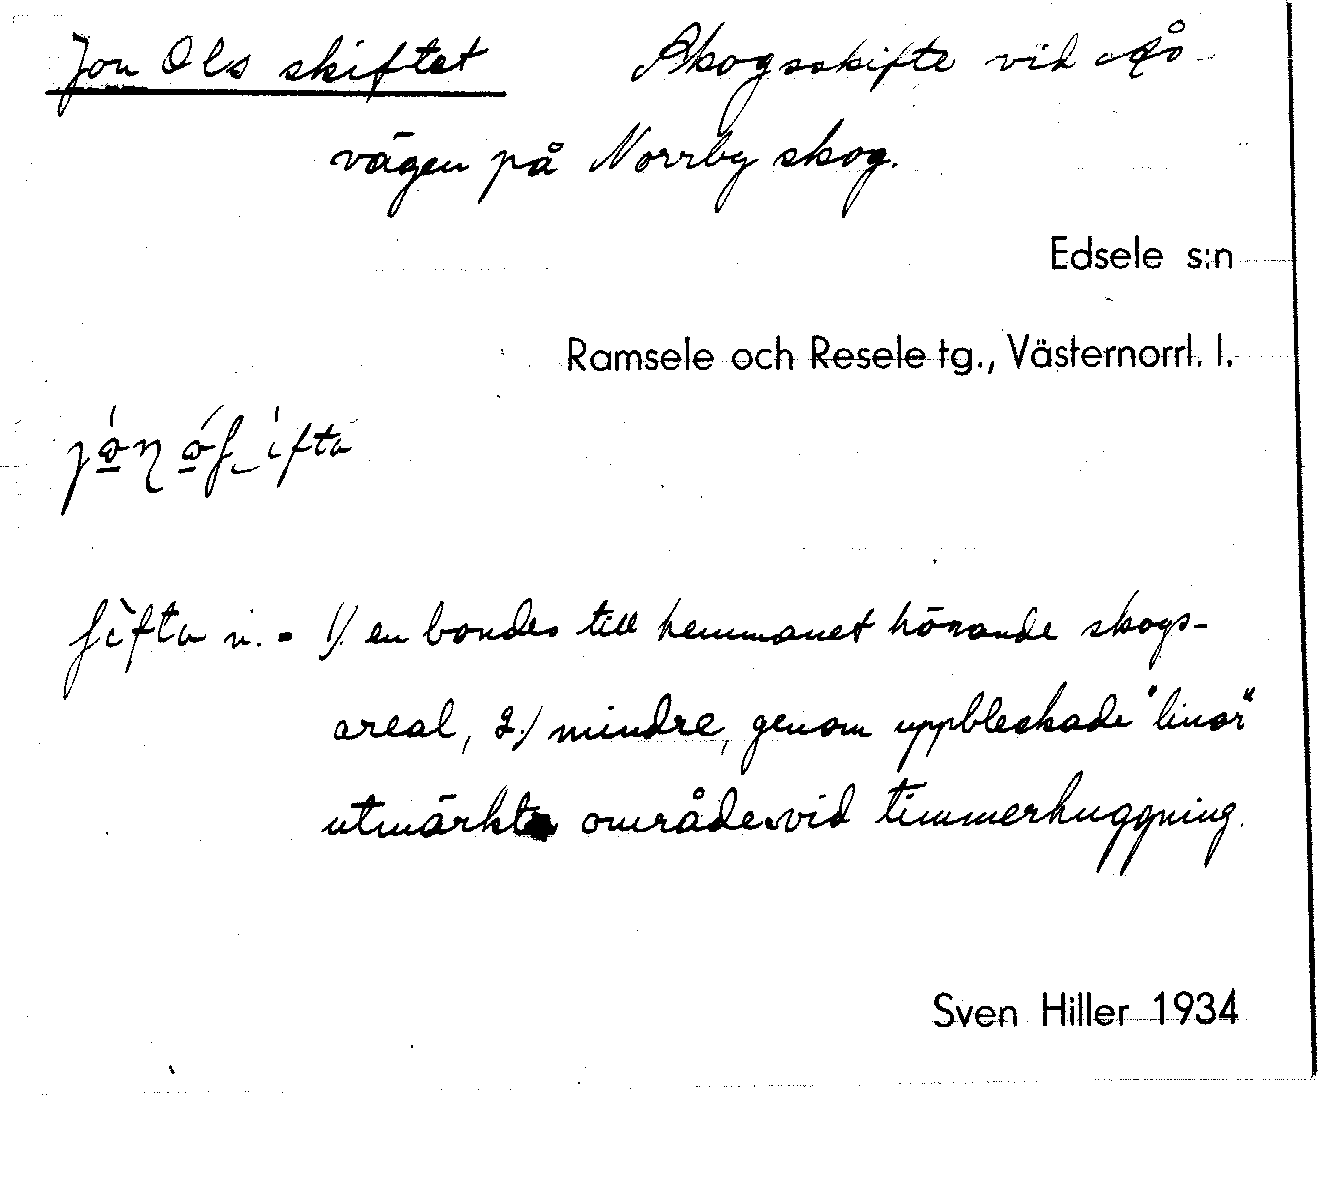 Jon Ols skiftet Skogsskifte vid
vägen på Norrby skog.
Edsele s:n
Ramsele och Resele tg., Västernorrl. l.
n. = 1) en bondes till hemmanet hörande skogs-
areal, 2.) mindre, genom uppbleckade "linor"
utmärkta område vid timmerhuggning.
Sven Hiller 1934